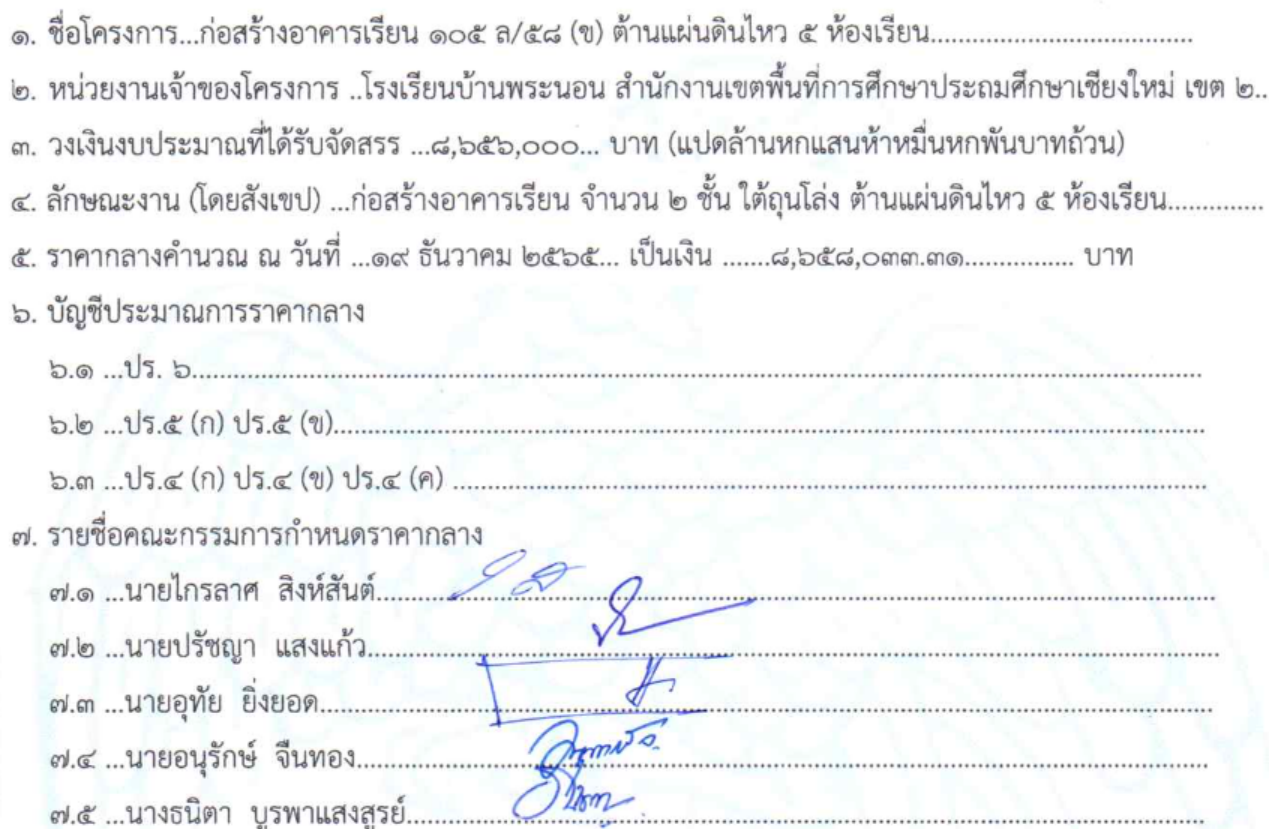 ๑. ชื่อโครงการ...ก่อสร้างอาคารเรียน ๑๐๕ ล/๕๘ (ข) ต้านแผ่นดินไหว ๕ ห้องเรียน...................................
๒. หน่วยงานเจ้าของโครงการ ..โรงเรียนบ้านพระนอน สำนักงานเขตพื้นที่การศึกษาประถมศึกษาเชียงใหม่ เขต ๒..
๓. วงเงินงบประมาณที่ได้รับจัดสรร ...๘,๖๕๖,๐๐๐... บาท (แปดล้านหกแสนห้าหมื่นหกพันบาทถ้วน)
๔. ลักษณะงาน (โดยสังเขป) ...ก่อสร้างอาคารเรียน จำนวน ๒ ชั้น ใต้ถุนโล่ง ต้านแผ่นดินไหว ๕ ห้องเรียน..............
๕. ราคากลางคำนวณ ณ วันที่ ...๑๙ ธันวาคม ๒๕๖๕... เป็นเงิน .......๘,๖๕๘,๐๓๓.๓๑................ บาท
๖. บัญชีประมาณการราคากลาง
๖.๑ ...ปร. ๖....................................................................................
๖.๒ ...ปร.๕ (ก) ปร.๕ (ข)....................................................................................
๖.๓ ...ปร.๔ (ก) ปร.๔ (ข) ปร.๔ (ค) ....................................................................................
๗. รายชื่อคณะกรรมการกำหนดราคากลาง
๗.๑ ...นายไกรลาศ สิงห์สันต์....................................................................................
๗.๒ ...นายปรัชญา แสงแก้ว....................................................................................
๗.๓ ...นายอุทัย ยิ่งยอด....................................................................................
๗.๔ ...นายอนุรักษ์ จีนทอง....................................................................................
๗.๕ ...นางธนิตา บูรพาแสงสูรย์....................................................................................